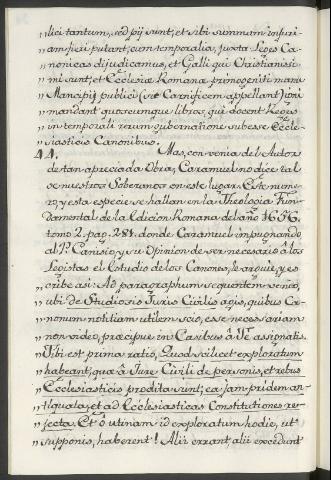 „ lici tantum, sed pij sunt; et sibi summam injuri-
„ am fieri putant, cum temporalia, juxta Leges Ca-
„ nonicas dijudicamus, et Galli qui Christianissi-
„ mi sunt, et Ecclesiæ Romanæ primogeniti manu
„ Mancipij publici (sæ Carnificem appellant) Viri
„ mandant quoscumque libros, qui docent Reges
„ in temporali rerum gubernatione subesse Eccle-
„ siasticis Canonibus.
44. Mas, con venia del Autor
de tan apreciada Obra, Caramuel no dice tal
se nuestros Soberanos en este lugar. Este nume-
ro, y esta especie se hallan en la Theologia Fun-
damental de la Edicion Romana del año 1656,
tomo 2. pag. 284. donde Caramuel impugnando
al P. Canisio, y su Opinion de ser necesario â los
Legistas el Estudio de los Canones, le arguie, y es-
cribe asi: Ad paragraphum sequentem venio,
ubi de Studiosis Juris Civilis agis, quibus Ca-
nonum notitiam utilem scio, esse necessariam
non video, præcipue in Casibus â Te assignatis.
Tibi est prima ratio, Quod scilicet exploratum
habeant, quæ â Jure Civili de personis, et rebus
Ecclesiasticis prodita sunt; ea jam pridem an-
tiquata, et ad Ecclesiasticas Constitutiones re-
jecta. Et ô utinam id exploratum hodie, ut
supponis, haberent! Alii errant, alii excedunt